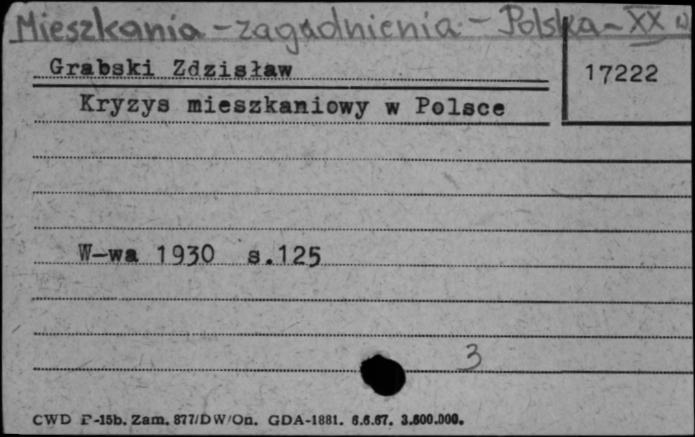 Mieszkania - zagadnienia - Polska - XX w
Grabski Zdzisław
17222
Kryzys mieszkaniowy w Polsce
W-wa 1930 s.125
3
CWD P-15b. Zam. 877/DW/On. GDA-1881. 6.6.67. 3.600.000.